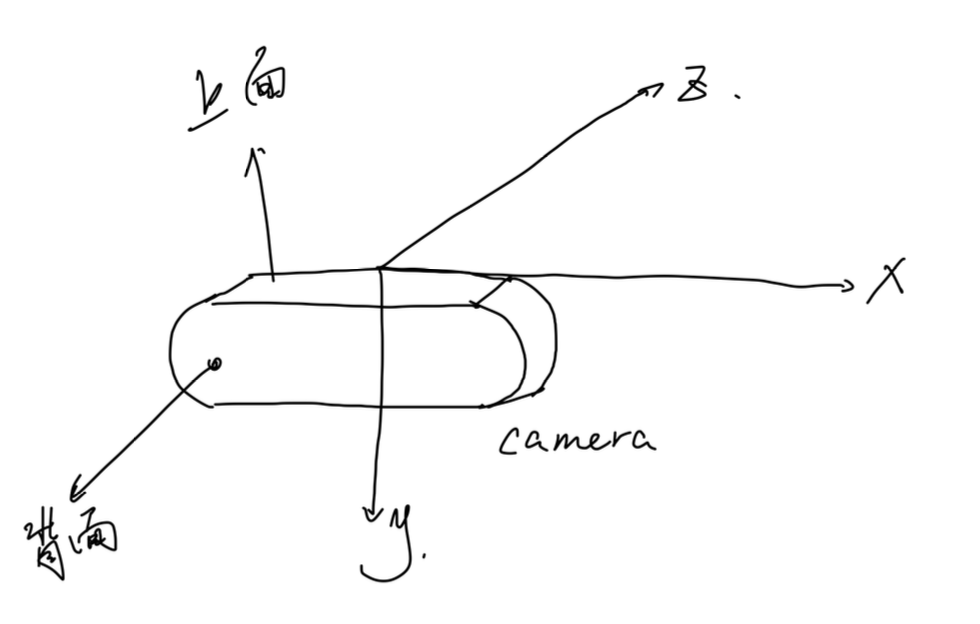 上面
z.
X
camera
背面
y.